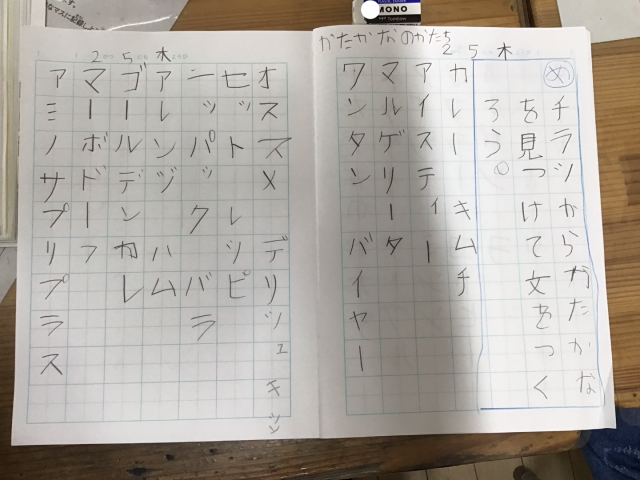 MONO
かたかなのかたち
2 5 木
め チラツからかたかな
を見つけて文をつく
ろう。
カレー キムチ
アイスティー
マルゲリータ
ワンタン バイヤー
2 5 木
オススメ デリ
セット レツピ
ニッパック バラ
アレンヅ ハム
ゴールデンカレ
マーボドーフ
アミノサプリプラス